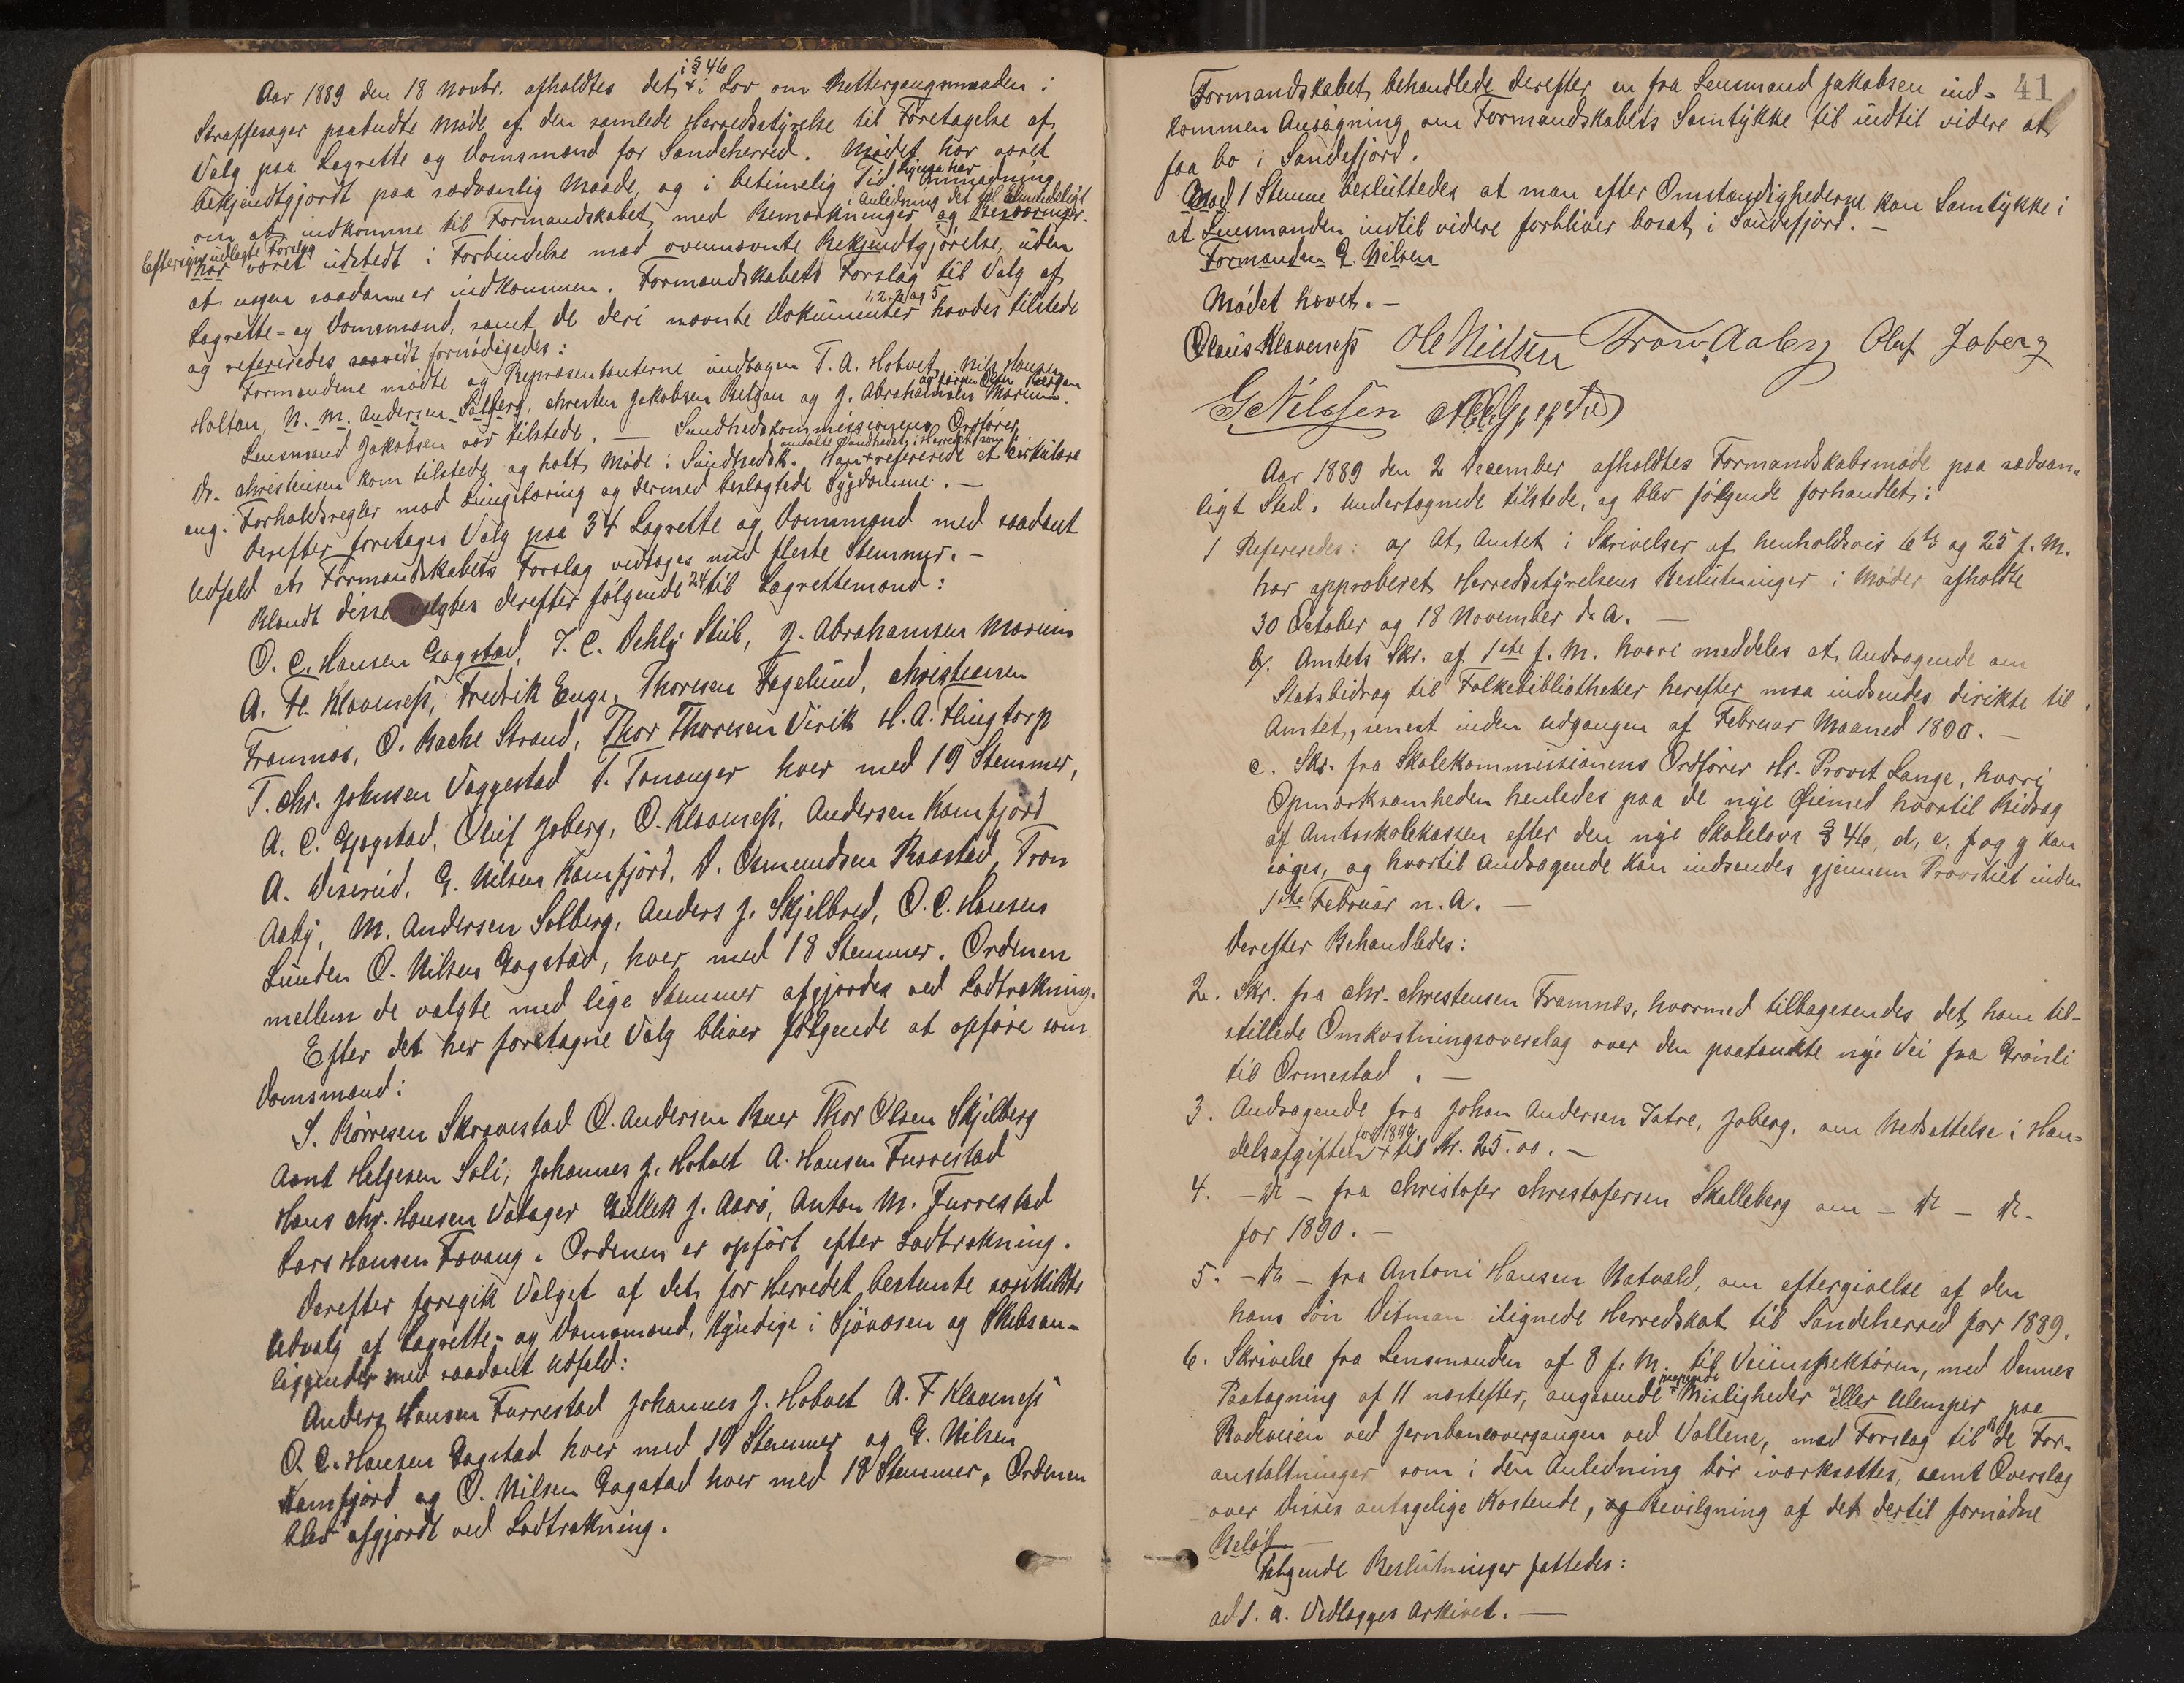 Aar 1889 den 18 Novbr. afholdtes det i § 46 i Lov om Rettergangsmaaden i
Straffesager paabudte Møde af den samlede Herredsstyrelse til Foretagelse af
Valg paa Lagrette og Domsmænd for Sandeherred. Mødet har været
bekjendtgjordt paa sædvanlig Maade, og i betimelig Tid. Ligesaa har Anmodning
om at indkomme til Formandskabet med Bemærkninger i Anledning det til Almindeligt
Eftersyn udlagte Forslag
har været udstedt i Forbindelse med ovennævnte Bekjendtgjørelse, uden
at nogen saadanne er indkommen. Formandskabets Forslag til Valg af
Lagrette- og Domsmænd, samt de deri nævnte Dokumenter 1, 2, og 5 havdes tilstede
og refereredes saavidt fornødigedes:
Formændene mødte og Repræsentanterne undtagen T. A. Hotvet, Nils Hansen
Holtan, N. M. Andersen Solberg, Christen Jakobsen Bergan og J. Abrahamsen Marum.
Lensmand Jakobsen var tilstede. — Sundhedskommissionens Ordfører,
Dr. Christensen kom tilstede og holt Møde i Sundhedsk. Han refererede et Cirkulære
ang. Forholdsregler mod Lungetæring og dermed beslægtede Sygdomme. —
Derefter foretages Valg paa 34 Lagrette og Domsmænd med saadant
Udfald at Formandskabets Forslag vedtages med fleste Stemmer. —
Blandt disse valgtes derefter følgende 24 til Lagrettemænd:
O. C. Hansen Gogstad, J. C. Dehly Stub, J. Abrahamsen Marum
A. F. Klavness, Fredrik Enge, Thoresen Fagelund, Christensen
Framnæs, O. Bache Strand, Thor Thoresen Virik H. A. Haugtorp
T. Chr. Johnsen Vaggestad T. Tananger hver med 19 Stemmer,
A. C. Gjøgstad, Oluf Joberg, O. Klavness, Andersen Kamfjord
A. Viserud, G. Nilsen Kamfjord, D. Osmundsen Raastad, Tron
Aaby, M. Andersen Solberg, Anders J. Skjelbred, O. C. Hansen
Lunden O. Nilsen Gogstad, hver med 18 Stemmer. Ordenen
mellem de valgte med lige Stemmer afgjordes ved Lodtrækning.
Efter det her foretagne Valg bliver følgende at opføre som
Domsmænd:
S. Børresen Skravestad O. Andersen Buer Thor Olsen Skjelberg
Aant Helgesen Soli, Johannes J. Hotvet A. Hansen Furrestad
Hans Chr. Hansen Vatager Gullek J. Aarø, Anton M. Furrestad
Lars Hansen Fevang. Ordenen er opført efter Lodtrækning.
Derefter foregik Valget af det for Herredet bestemte særskildte
Udvalg af Lagrette- og Domsmænd, kyndige i Sjøvæsen og Skibsan-
liggender med saadant Udfald:
Anders Hansen Furrestad Johannes J. Hotvet A. F Klavness
O. C. Hansen Gogstad hver med 19 Stemmer og G. Nilsen
Kamfjord og O. Nilsen Gogstad hver med 18 Stemmer. Ordenen
blev afgjordt ved Lodtrækning.
41
Formandskabet behandlede derefter en fra Lensmand Jakobsen ind-
kommen Ansøgning om Formandskabets Samtykke til indtil videre at
faa bo i Sandefjord.
Mod 1 Stemme besluttedes at man efter Omstændighederne kan Samtykke i
at Lensmanden indtil videre forbliver bosat i Sandefjord. —
Formanden G. Nilsen
Mødet hævet. —
Claus Klaveness Ole Nielsen Tron Aaby Oluf Joberg
G Nilssen
Aar 1889 den 2 December afholdtes Formandskabsmøde paa sædvan-
ligt Sted. Undertegnede tilstede, og blev følgende forhandlet:
1 Refereredes: a, At Amtet i Skrivelser af henholdsvis 6te og 25 f. M.
har approberet Herredsstyrelsens Beslutninger i Møder afholdte
30 October og 18 November d. A. —
b. Amtets Skr. af 1ste f. M. hvori meddeles at Andragende om
Statsbidrag til Folkebibliotheker herefter maa indsendes direkte til
Amtet, senest inden Udgangen af Februar Maaned 1890. —
c. Skr. fra Skolekommissionens Ordfører Hr. Provst Lange, hvori
Opmærksomheden henledes paa de nye Øiemed hvortil Bidrag
af Amtsskolekassen efter den nye Skolelovs § 46, d, e, f og g kan
søges, og hvortil Andragende kan indsendes gjennem Provstiet inden
1ste Februar n. A. —
Derefter Behandledes:
2. Skr. fra Chr. Christensen Framnæs, hvormed tilbagesendes det ham til-
stillede Omkostningsoverslag over den paatænkte nye Vei fra Grønli
til Ormestad. —
3. Andragende fra Johan Andersen Istre, Joberg, om Nedsættelse i Han-
delsafgiften for 1890 til Kr. 25.00. —
4. — Do — fra Christofer Christofersen Skalleberg om — Do — Do.
for 1890. —
5. — Do — fra Antoni Hansen Natvald, om eftergivelse af den
hans Søn Ditman ilignede Herredskat til Sandeherred for 1889.
6. Skrivelse fra Lensmanden af 8 f. M. til Veiinspektøren, med Dennes
Paategning af 11 næstefter, angaaende Misligheder eller Ulemper paa
Rodeveien ved Jernbaneovergangen ved Vollene, med Forslag til de For-
anstaltninger som i den Anledning bør iværksættes, samt Overslag
over Disses antagelige Kostende, og Bevilgning af det dertil fornødne
Beløb —
Følgende Beslutninger fattedes:
ad 1. a. Vedlægges Arkivet. —